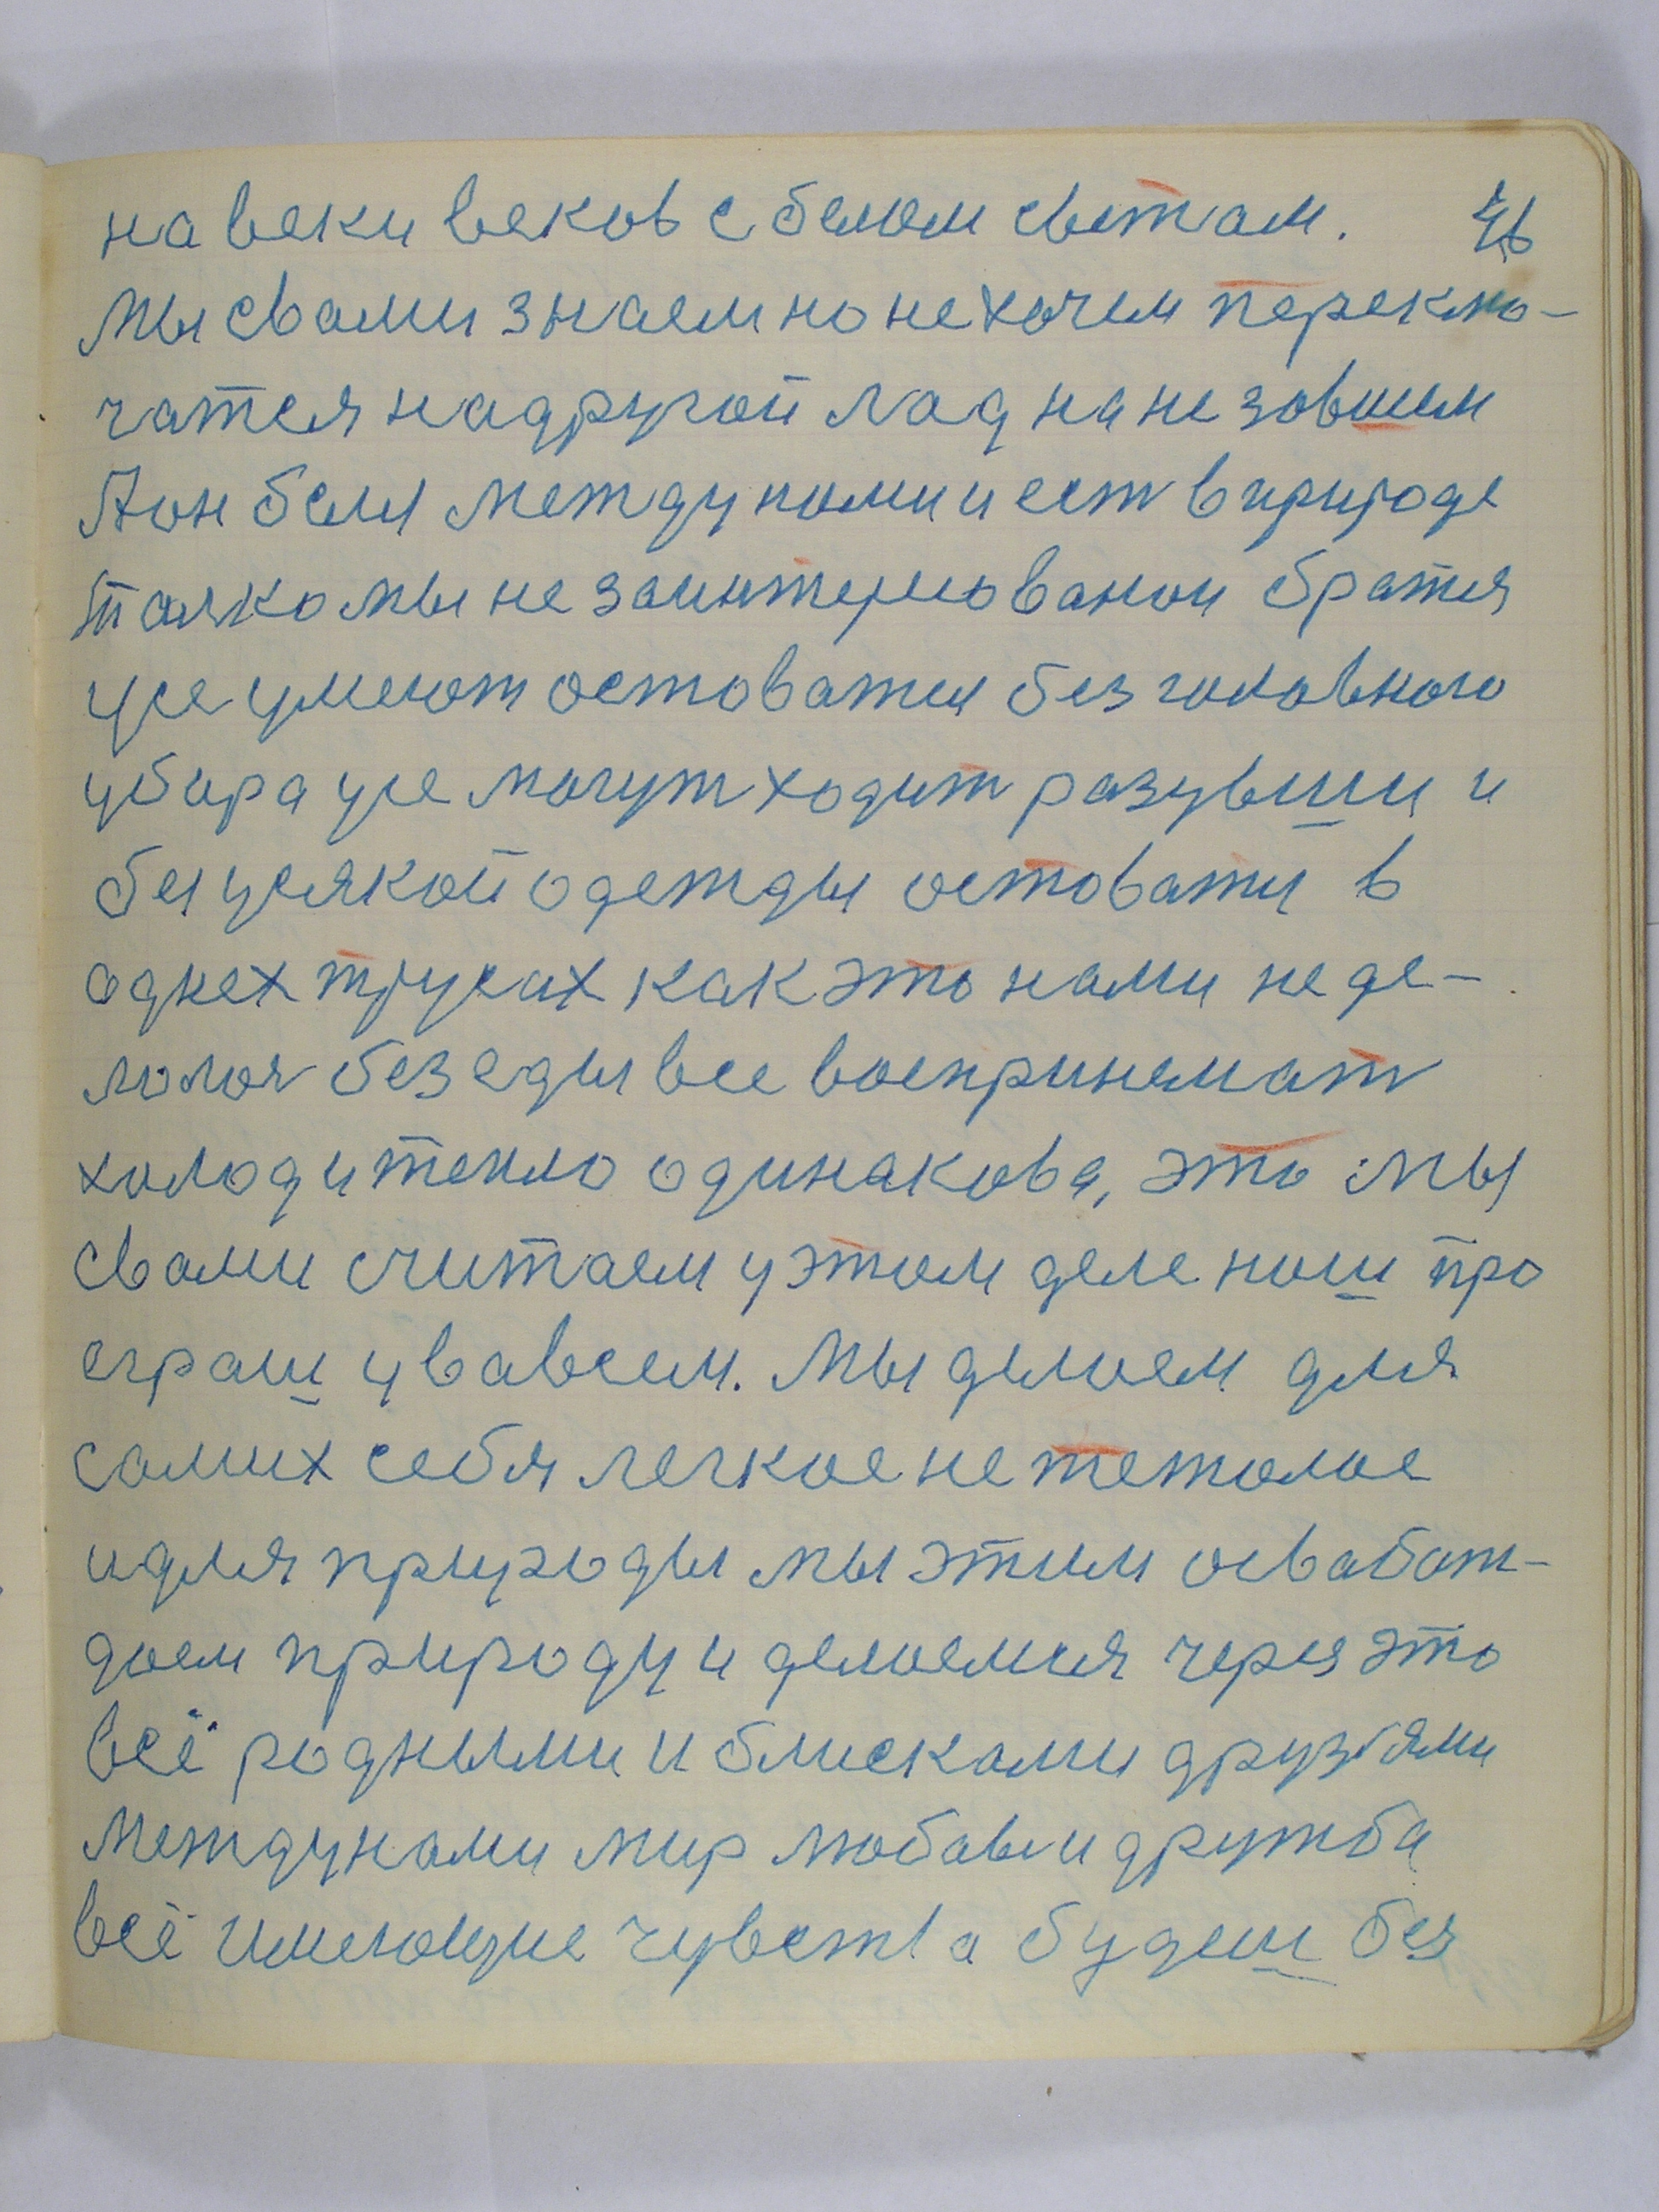 на веки веков с белом светам. 46
Мы свами знаем но не хочем переклю-
чатся надругой лад на не зовшем
Аон беля между нами и ест в природе
толко мы не заинтересованои братия
усе умеют остоватия без головного
убора усе могут ходит разувши и
без усякой одежды остоватия в
однех трусах как это нами не де-
лолоя без еды все воспринемат
холод и тепло одинакова, это мы
свами считаем у этом деле нош про
еграш у вавсем. Мы делоем для
самих себя легкое не тежолое
и для природы мы этим освабож-
доем природу и делоемся через это
всё родными и блискоми друзями
Между нами мир любавь и дружба
всё имеющие чувства будеш без